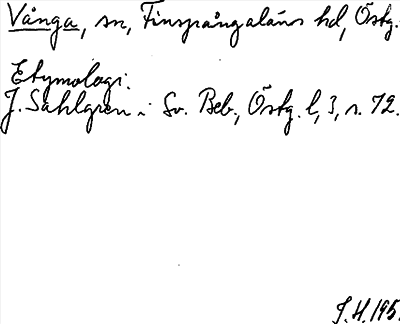 Vånga, sn, Finspångaläns hd, Östg.
Etymologi.
J. Sahlgren i Sv. Beb., Östg. l, 3, s. 72.
J.H. 195